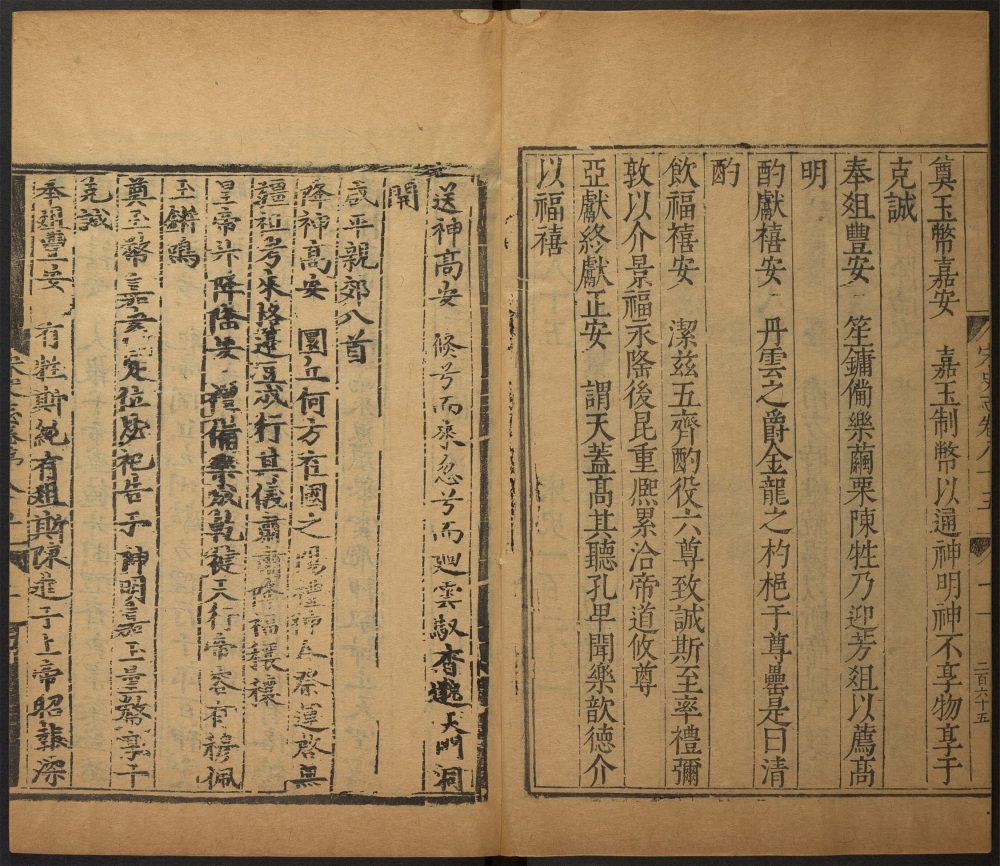 奠玉幣嘉安 嘉玉制幣以通神明神不享物享于
克誠
奉爼豊安 笙鏞僃樂繭栗陳牲乃迎芳爼以薦高
明
酌獻禧安 丹雲之爵金龍之杓挹于尊罍是曰清
酌
飲福禧安 潔兹五齊酌彼六尊致誠斯至率禮彌
敦以介景福永隆後昆重熈累洽帝道攸尊
亞獻終獻正安 謂天蓋高其聽孔卑聞樂歆德介
以福禧
宋史志卷八十五 二百六十五
送神髙安 倐兮而來忽兮而廻雲馭杳邈天門洞
開
咸平親郊八首
降神高安 圜丘何方在國之陽禮神合祭運啓無
疆祖考來格籩豆成行其儀肅肅降福穰穰
皇帝升降隆安 禮僃樂成乾健天行帝容有穆佩
玉鏘鳴
奠玉幣嘉安 定位毖祀告于神明嘉玉量幣享于
克誠
奉爼豐安 有牲斯純有爼斯陳進于上帝昭報深